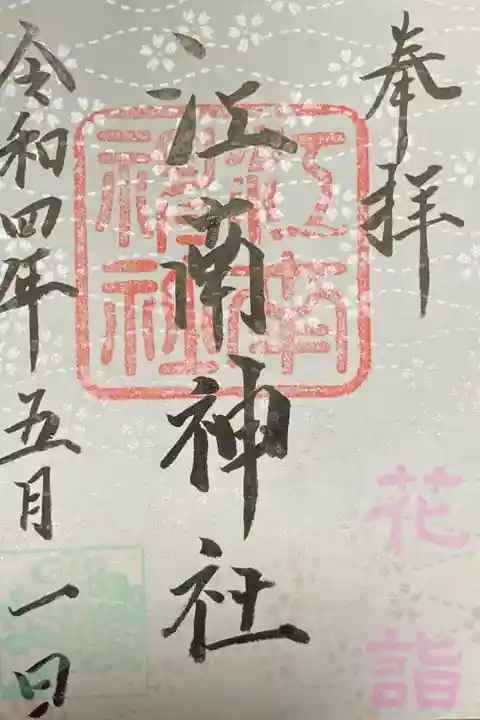 奉拝
花詣
江南神社
令和四年五月一日